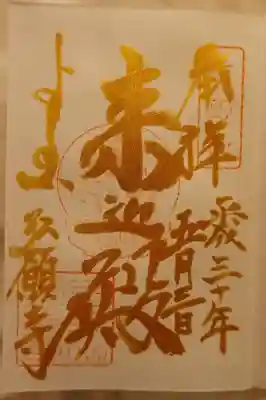 奉拝
平成三十年
五月三日
来迎殿
弘願寺